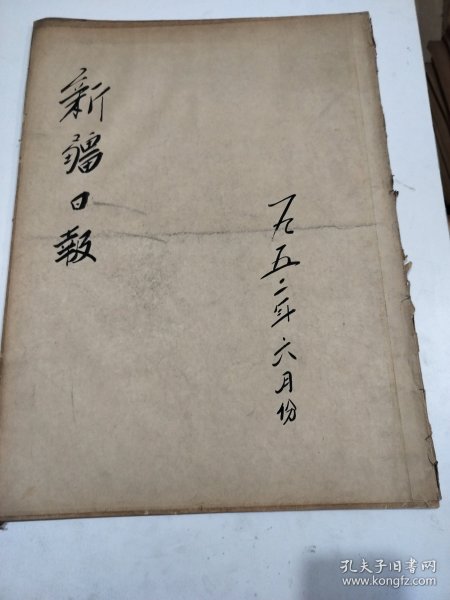 新疆日報
一九五二年六月份
孔夫子旧书网
www.kongfz.com